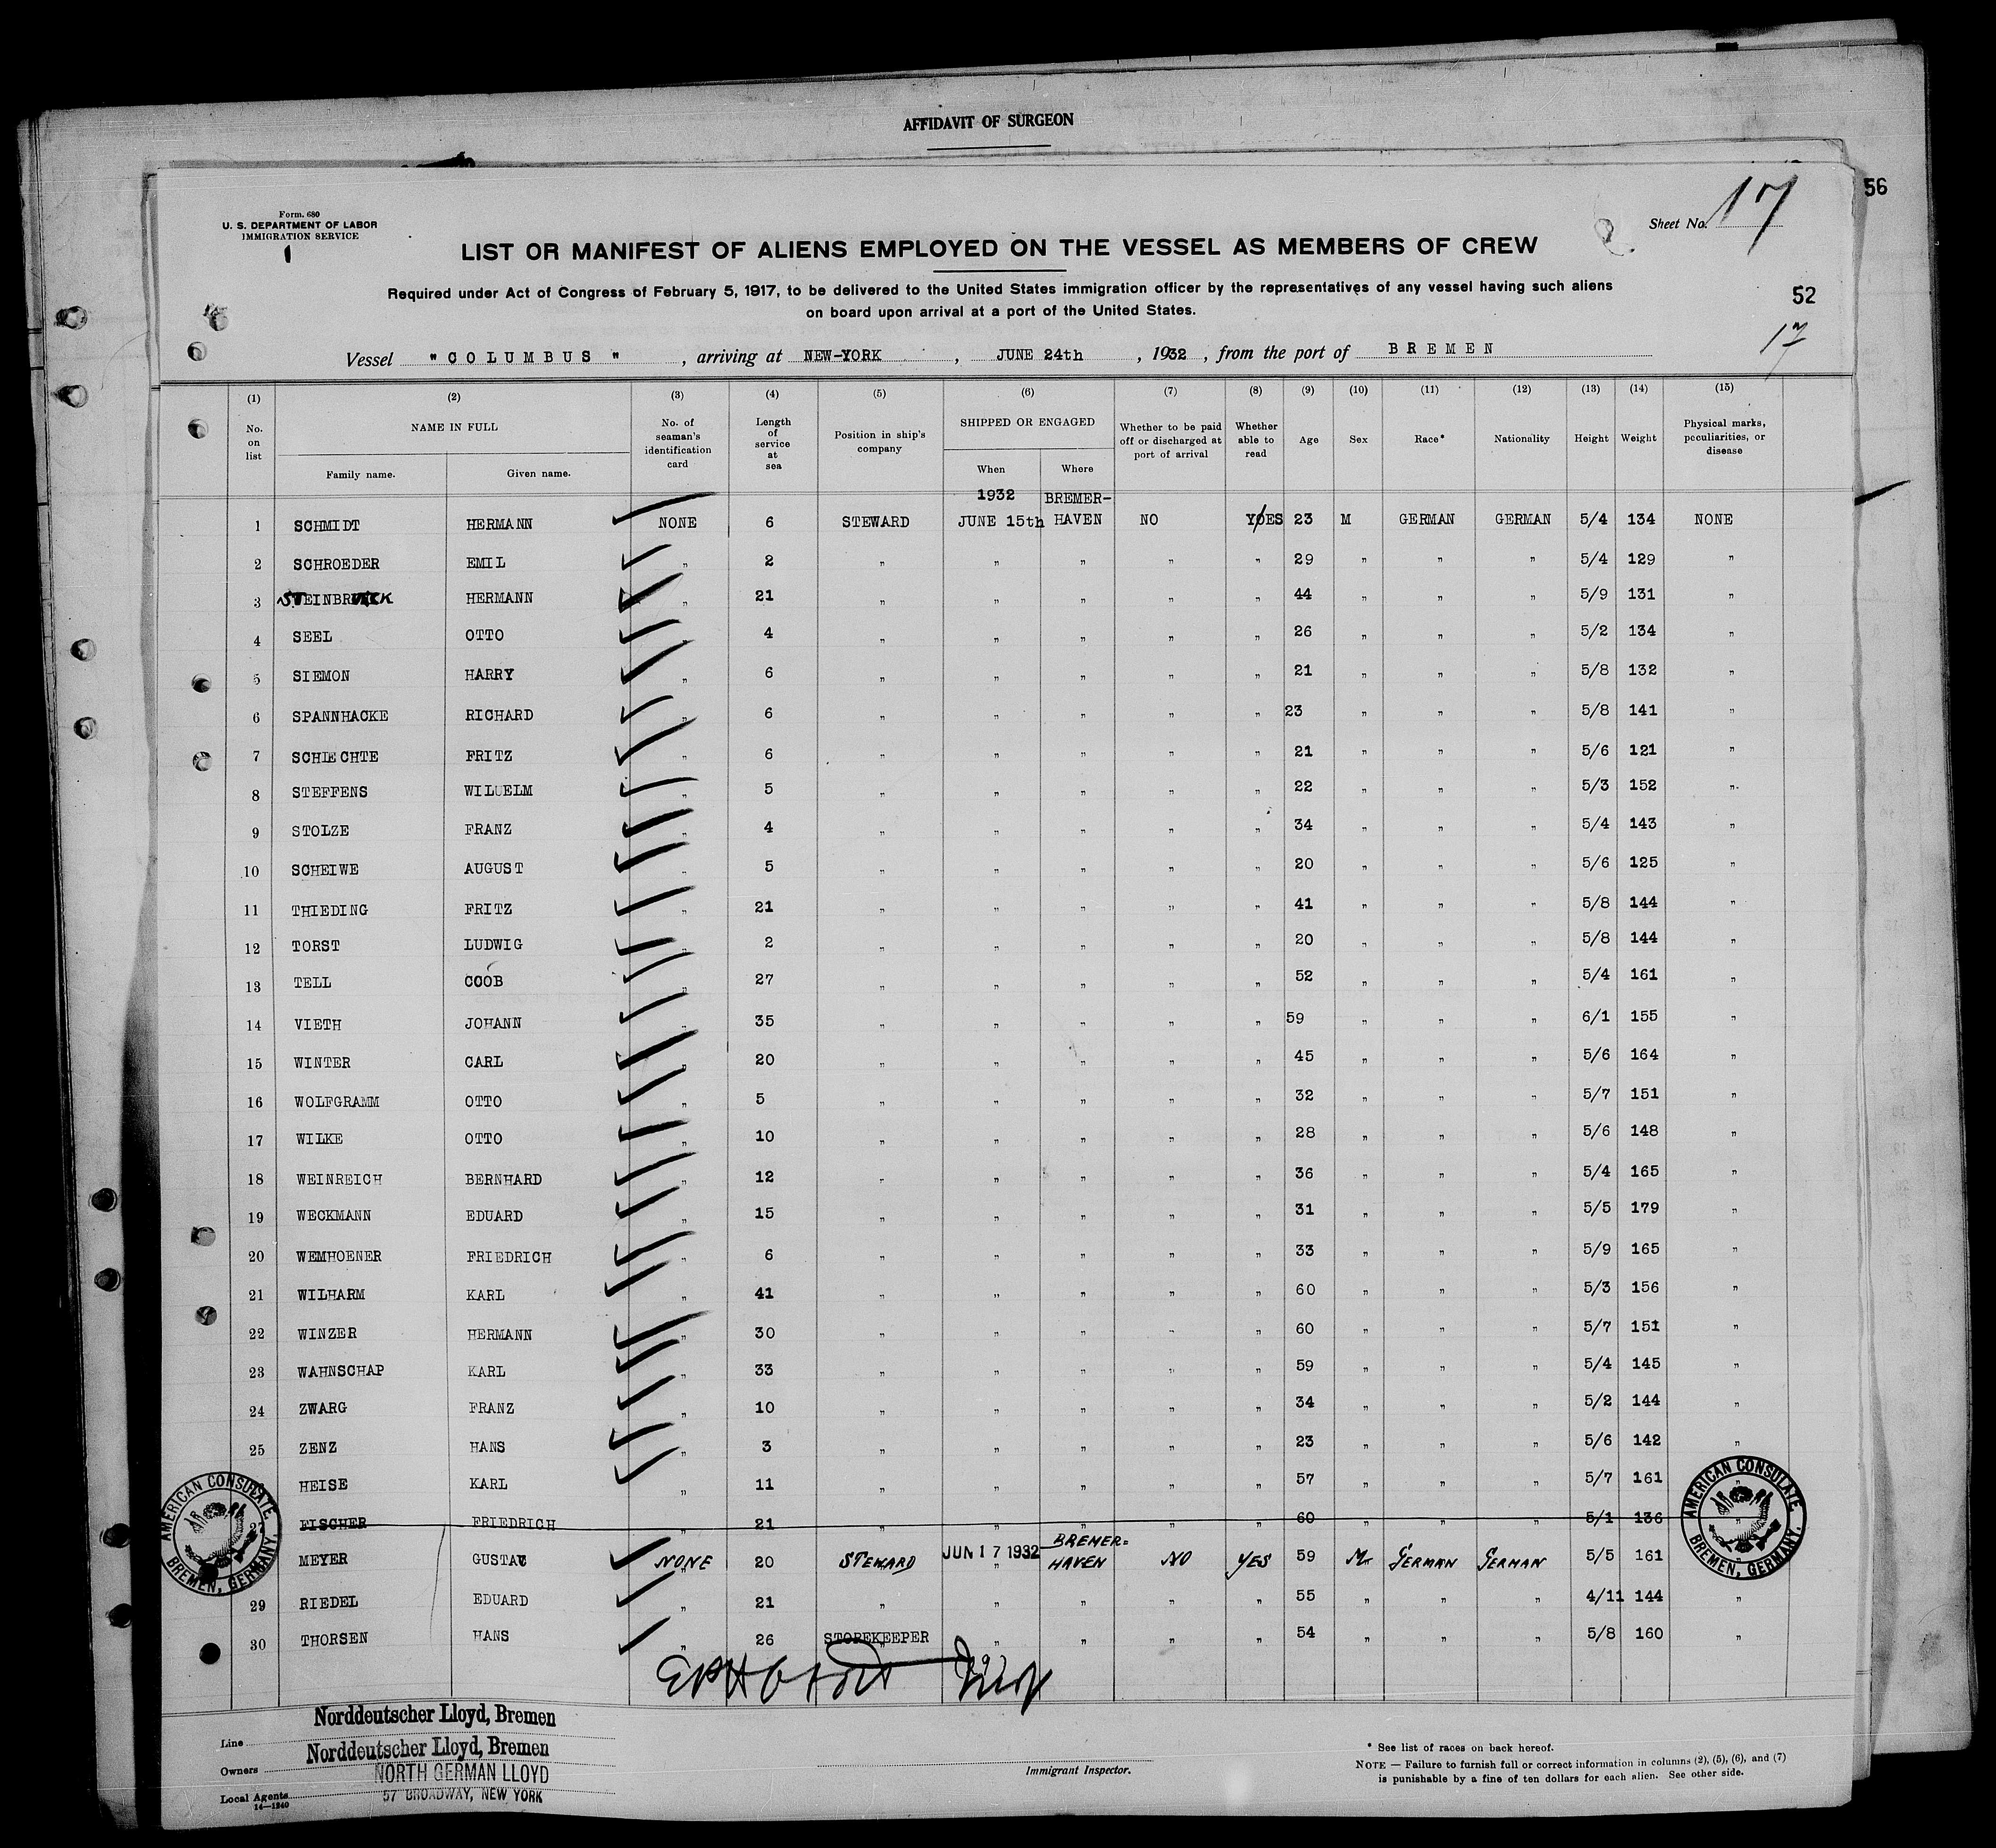 AFFIDAVIT OF SURGEON
56
Form. 680
U. S. DEPARTMENT OF LABOR
IMMIGRATION SERVICE
1
Sheet No. 17
LIST OR MANIFEST OF ALIENS EMPLOYED ON THE VESSEL AS MEMBERS OF CREW
Required under Act of Congress of February 5, 1917, to be delivered to the United States immigration officer by the representatives of any vessel having such aliens
on board upon arrival at a port of the United States.
52
17
Vessel "COLUMBUS" , arriving at NEW-YORK , JUNE 24th , 1932 , from the port of BREMEN
(1) (2) (3) (4) (5) (6) (7) (8) (9) (10) (11) (12) (13) (14) (15)
No. on list NAME IN FULL Family name. Given name. No. of seaman's identification card Length of service at sea Position in ship's company SHIPPED OR ENGAGED When Where Whether to be paid off or discharged at port of arrival Whether able to read Age Sex Race* Nationality Height Weight Physical marks, peculiarities, or disease
1932 BREMER-
1 SCHMIDT HERMANN NONE 6 STEWARD JUNE 15th HAVEN NO YES 23 M GERMAN GERMAN 5/4 134 NONE
2 SCHROEDER EMIL " 2 " " " " " 29 " " " 5/4 129 "
3 STEINBRUECK HERMANN " 21 " " " " " 44 " " " 5/9 131 "
4 SEEL OTTO " 4 " " " " " 26 " " " 5/2 134 "
5 SIEMON HARRY " 6 " " " " " 21 " " " 5/8 132 "
6 SPANNHACKE RICHARD " 6 " " " " " 23 " " " 5/8 141 "
7 SCHLECHTE FRITZ " 6 " " " " " 21 " " " 5/6 121 "
8 STEFFENS WILUELM " 5 " " " " " 22 " " " 5/3 152 "
9 STOLZE FRANZ " 4 " " " " " 34 " " " 5/4 143 "
10 SCHEIWE AUGUST " 5 " " " " " 20 " " " 5/6 125 "
11 THIEDING FRITZ " 21 " " " " " 41 " " " 5/8 144 "
12 TORST LUDWIG " 2 " " " " " 20 " " " 5/8 144 "
13 TELL COOB " 27 " " " " " 52 " " " 5/4 161 "
14 VIETH JOHANN " 35 " " " " " 59 " " " 6/1 155 "
15 WINTER CARL " 20 " " " " " 45 " " " 5/6 164 "
16 WOLFGRAMM OTTO " 5 " " " " " 32 " " " 5/7 151 "
17 WILKE OTTO " 10 " " " " " 28 " " " 5/6 148 "
18 WEINREICH BERNHARD " 12 " " " " " 36 " " " 5/4 165 "
19 WECKMANN EDUARD " 15 " " " " " 31 " " " 5/5 179 "
20 WEMHOENER FRIEDRICH " 6 " " " " " 33 " " " 5/9 165 "
21 WILHARM KARL " 41 " " " " " 60 " " " 5/3 156 "
22 WINZER HERMANN " 30 " " " " " 60 " " " 5/7 151 "
23 WAHNSCHAP KARL " 33 " " " " " 59 " " " 5/4 145 "
24 ZWARG FRANZ " 10 " " " " " 34 " " " 5/2 144 "
25 ZENZ HANS " 3 " " " " " 23 " " " 5/6 142 "
HEISE KARL " 11 " " " " " 57 " " " 5/7 161 "
27 FISCHER FRIEDRICH " 21 " " " " " 60 " " " 5/1 136 "
BREMER=
MEYER GUSTAV NONE 20 STEWARD JUN 17 1932 HAVEN NO YES 59 M GERMAN GERMAN 5/5 161 "
29 RIEDEL EDUARD " 21 " " " " " 55 " " " 4/11 144 "
30 THORSEN HANS " 26 STOREKEEPER " " " " 54 " " " 5/8 160 "
AMERICAN CONSULATE, BREMEN, GERMANY.
AMERICAN CONSULATE, BREMEN, GERMANY.
Line Norddeutscher Lloyd, Bremen
Owners Norddeutscher Lloyd, Bremen
NORTH GERMAN LLOYD
Local Agents 57 BROADWAY, NEW YORK
14—1240
Immigrant Inspector.
* See list of races on back hereof.
NOTE — Failure to furnish full or correct information in columns (2), (5), (6), and (7)
is punishable by a fine of ten dollars for each alien. See other side.